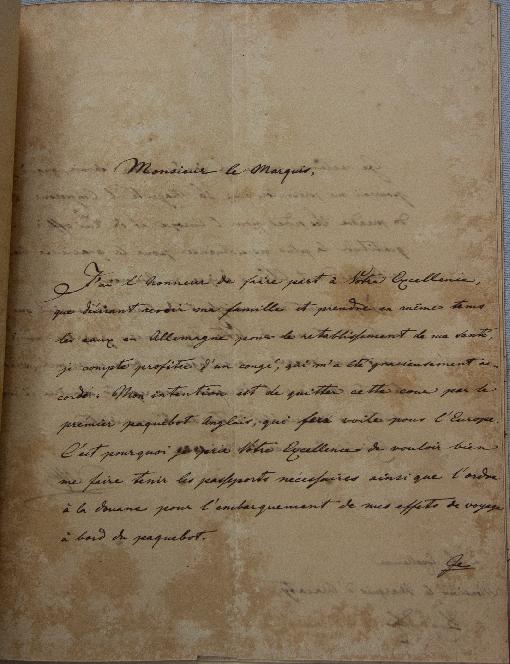 Monsieur le Marquis,
J'ai l'honneur de faire part à Votre Excellence,
que désirant revoir ma famille et prendre en même tems
les eaux en Allemagne pour le rétablissement de ma santé,
je compte profiter d'un congé, qui m'a été gracieusement ac-
cordé. Mon intention est de quitter cette cour par le
premier paquebot Anglais, qui fera voile pour l'Europe.
C'est pourquoi je prie Votre Excellence de vouloir bien
me faire tenir les passeports necessaires ainsi que l'ordre
à la douane pour l'embarquement de mes effets de voyage
à bord du paquebot.
Je